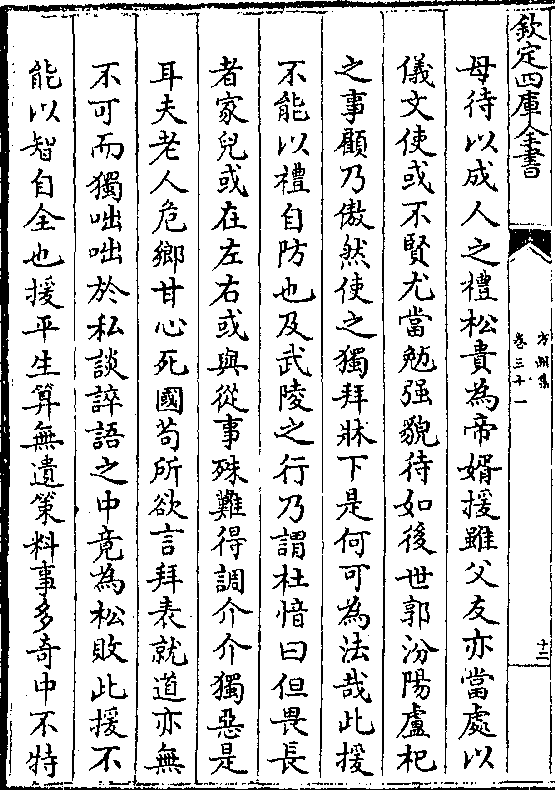 欽定四庫全書
方洲集
卷三十一
十二
母待以成人之禮松貴為帝婿援雖父友亦當處以
儀文使或不賢尤當勉强貌待如後世郭汾陽盧杞
之事顧乃傲然使之獨拜牀下是何可為法哉此援
不能以禮自防也及武陵之行乃謂杜愔曰但畏長
者家兒或在左右或與從事殊難得調介介獨惡是
耳夫老人危鄉甘心死國苟所欲言拜表就道亦無
不可而獨咄咄於私談誶語之中竟為松敗此援不
能以智自全也援平生算無遺策料事多奇中不特